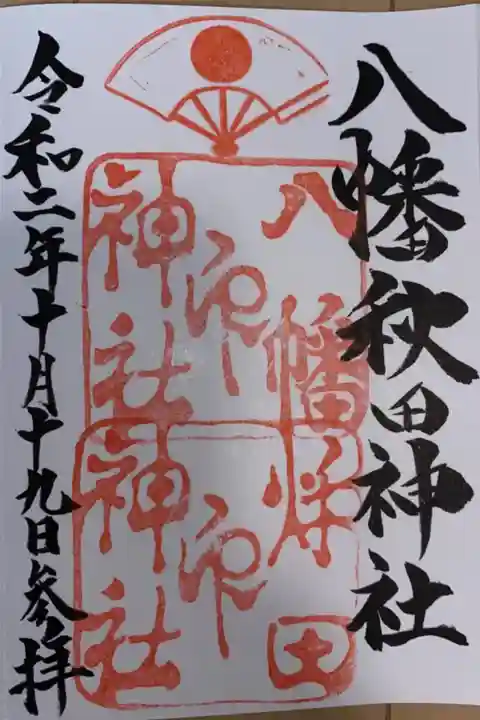 八幡秋田神社
八幡
神印
神社
秋田
神印
神社
令和二年十月十九日参拝